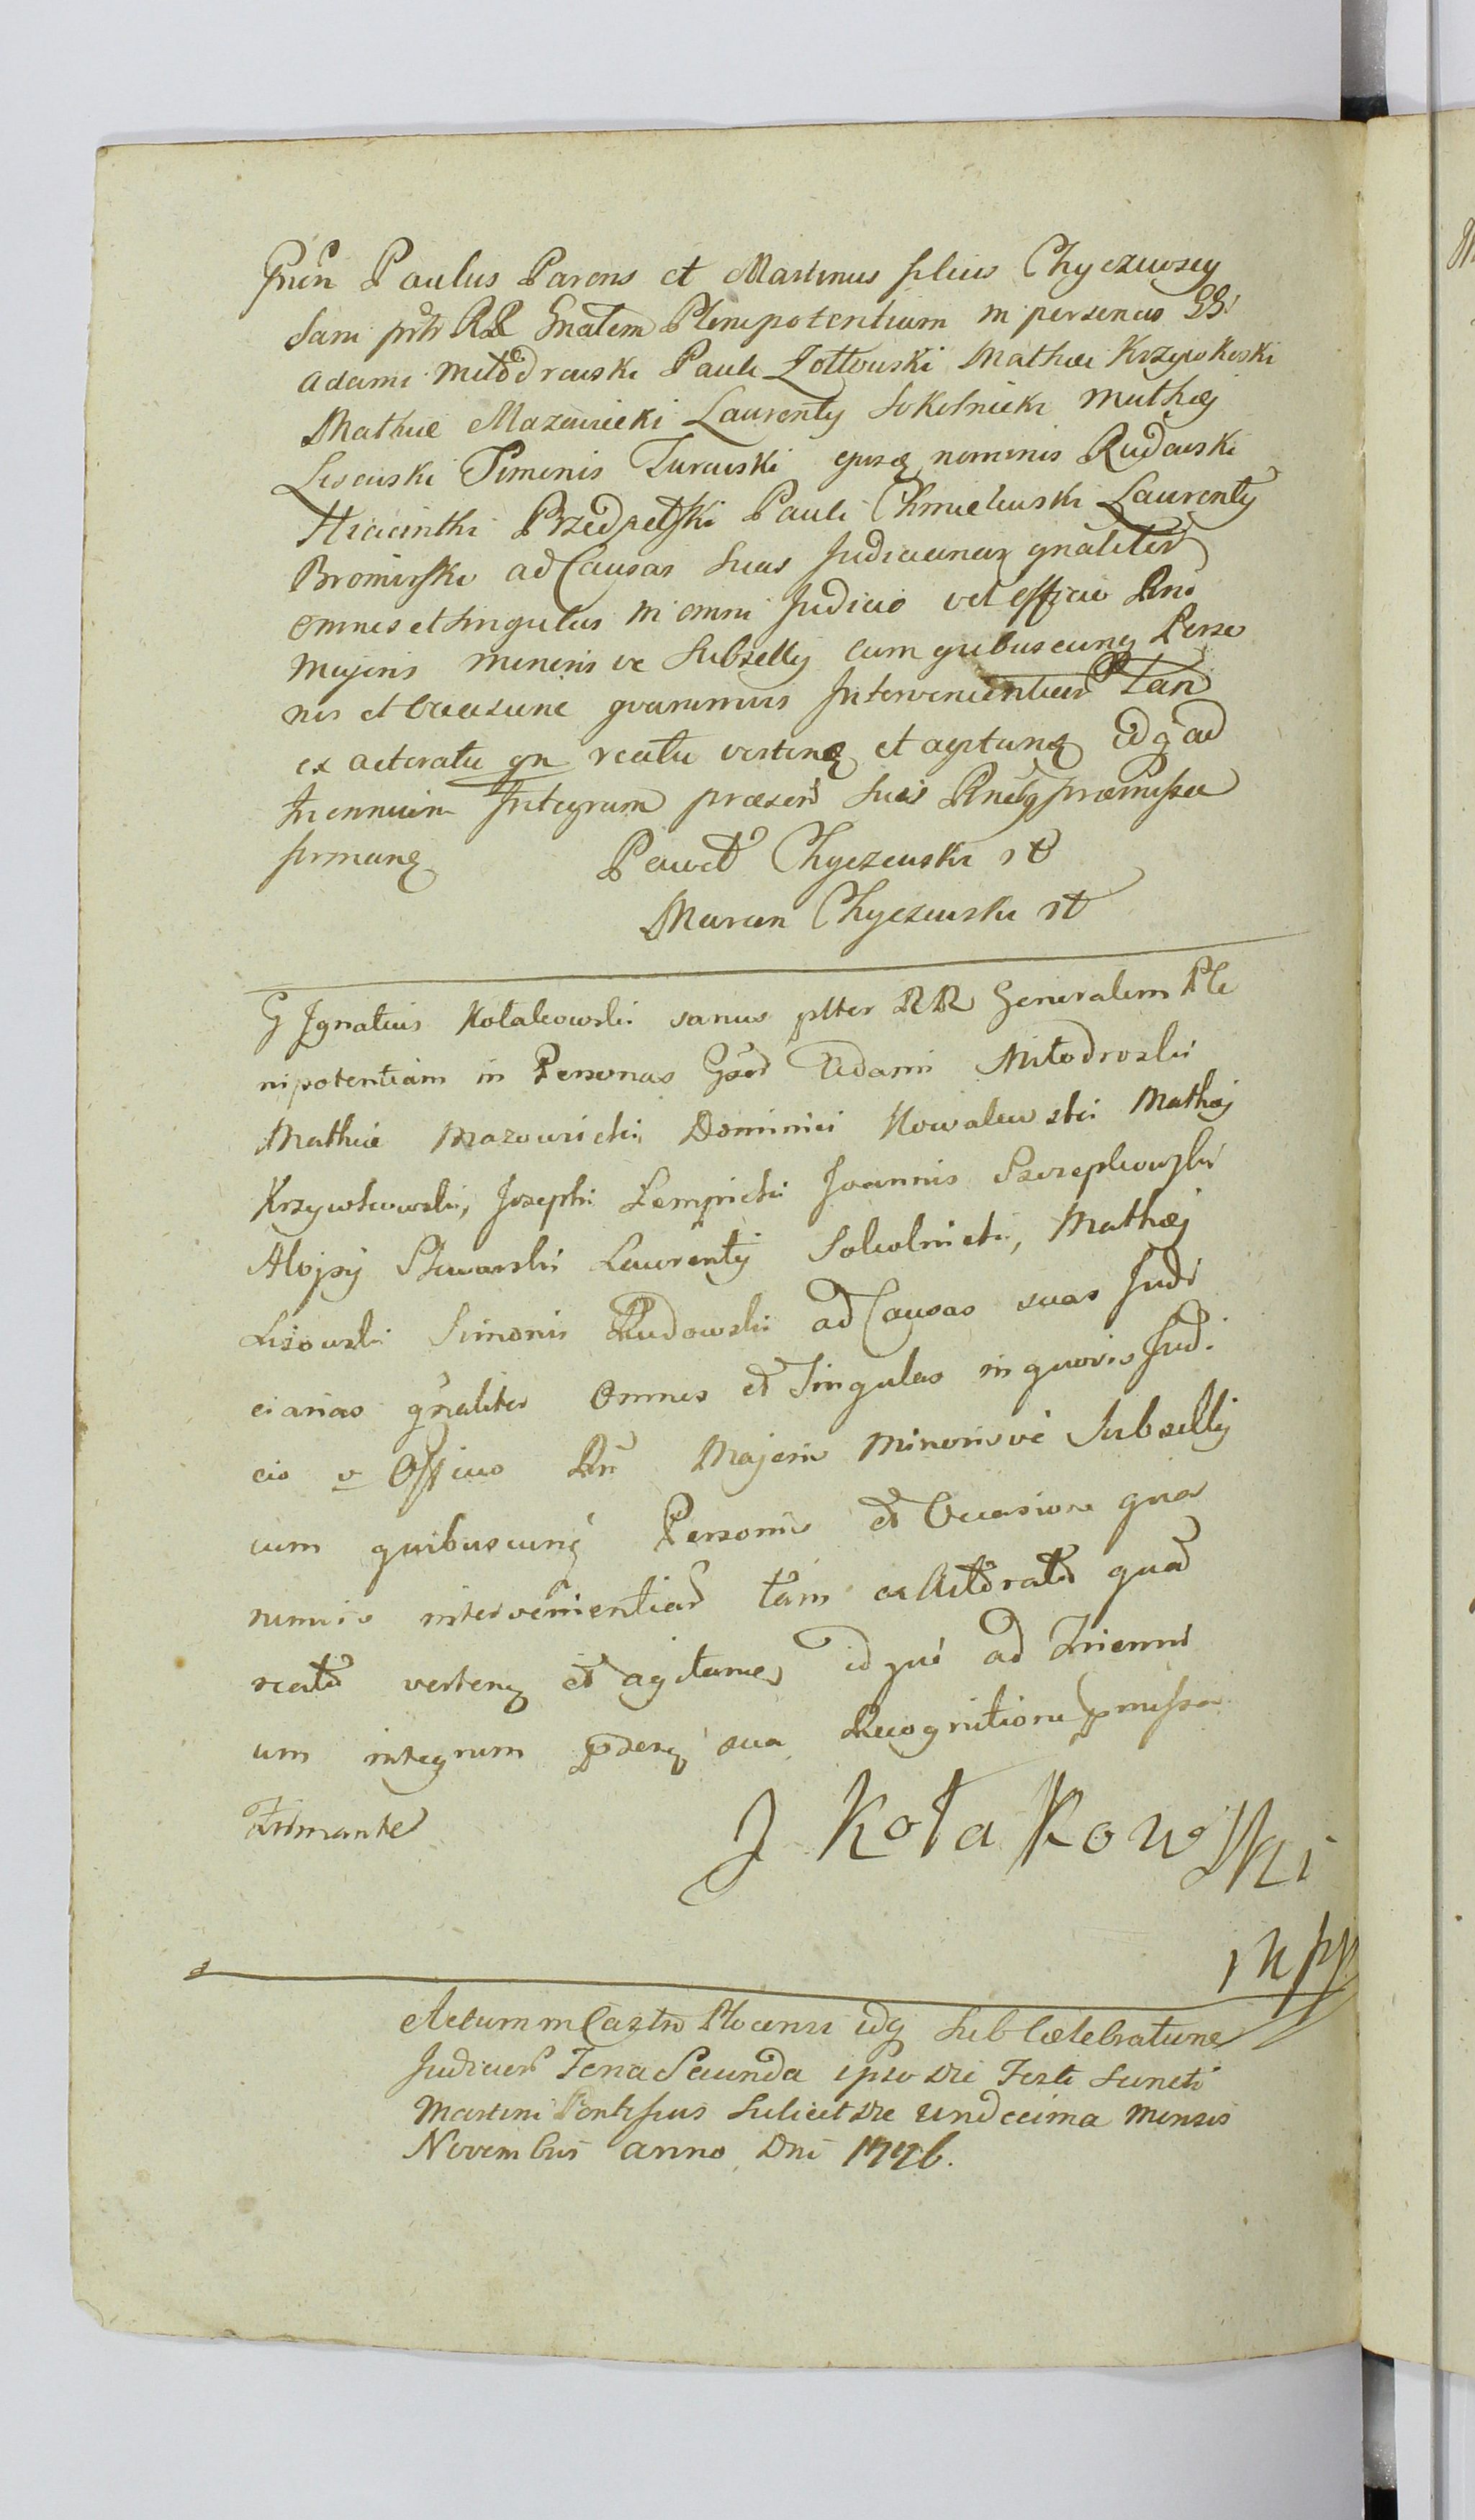 Paulus Parens et Martinus filius Chyczewscy
Sani RR Gnalem Plenipotentiam in personas GG
Adami Miłodrowski Pauli Zołtowski Mathiæ Krzywkoski
Mathiæ Mazowiecki Laurentÿ Sokolnicki Mathæj
Lisowski Simonis Turowski ejusq nominis Rudowski
Hiacinthi Przedpełski Pauli Chmielewski Laurentÿ
Bromirski ad Causas Suas Judiciariaz gnaliter
omnes et singulas in omni Judicio vel officio Rni
Majoris minoris ve Subsellÿ cum quibuscunq Perso
nis et Occasione quarumvis Intervenientiar Tan
ex actoratu qn reatu verten et agitanq idq ad
triennium Integrum præsen Suis præmissa
firmanq
Paweł Chyczewski
Marcin Chyczewski
G Ignatius Kołakowski sanus RR Generalem Ple
nipotentiam in Personas Adami Miłodroski
Mathiæ Mazowiecki Dominici Kowalewski Mathæj
Krzywkowski, Josephi Łempicki Joannis Szczepkowski
Alojsÿ Laurentÿ Sokolnicki, Mathæj
Lisowski Simonis Rudowski ad Causas suas Judi
ciarias gnaliter Omnes et Singulas in quovis Judi
cio v Officio Rn Majoris Minorisve Subsellÿ
cum quibuscunq Personis et Occasione qua
rumvis intervenientiar tam ex Actoratu quā
reatu verten et agitanq idque ad Trienni
um integrum sua Recognitione pmissa
Firmante
J Kołakowski
mpp
Actum in Castro Plocensi idq Sub Cœlebratione
Judicior Feria Secunda ipso die Festi Sancti
Martini Pontificis Scilicet die undecima mensis
Novembris anno Dni